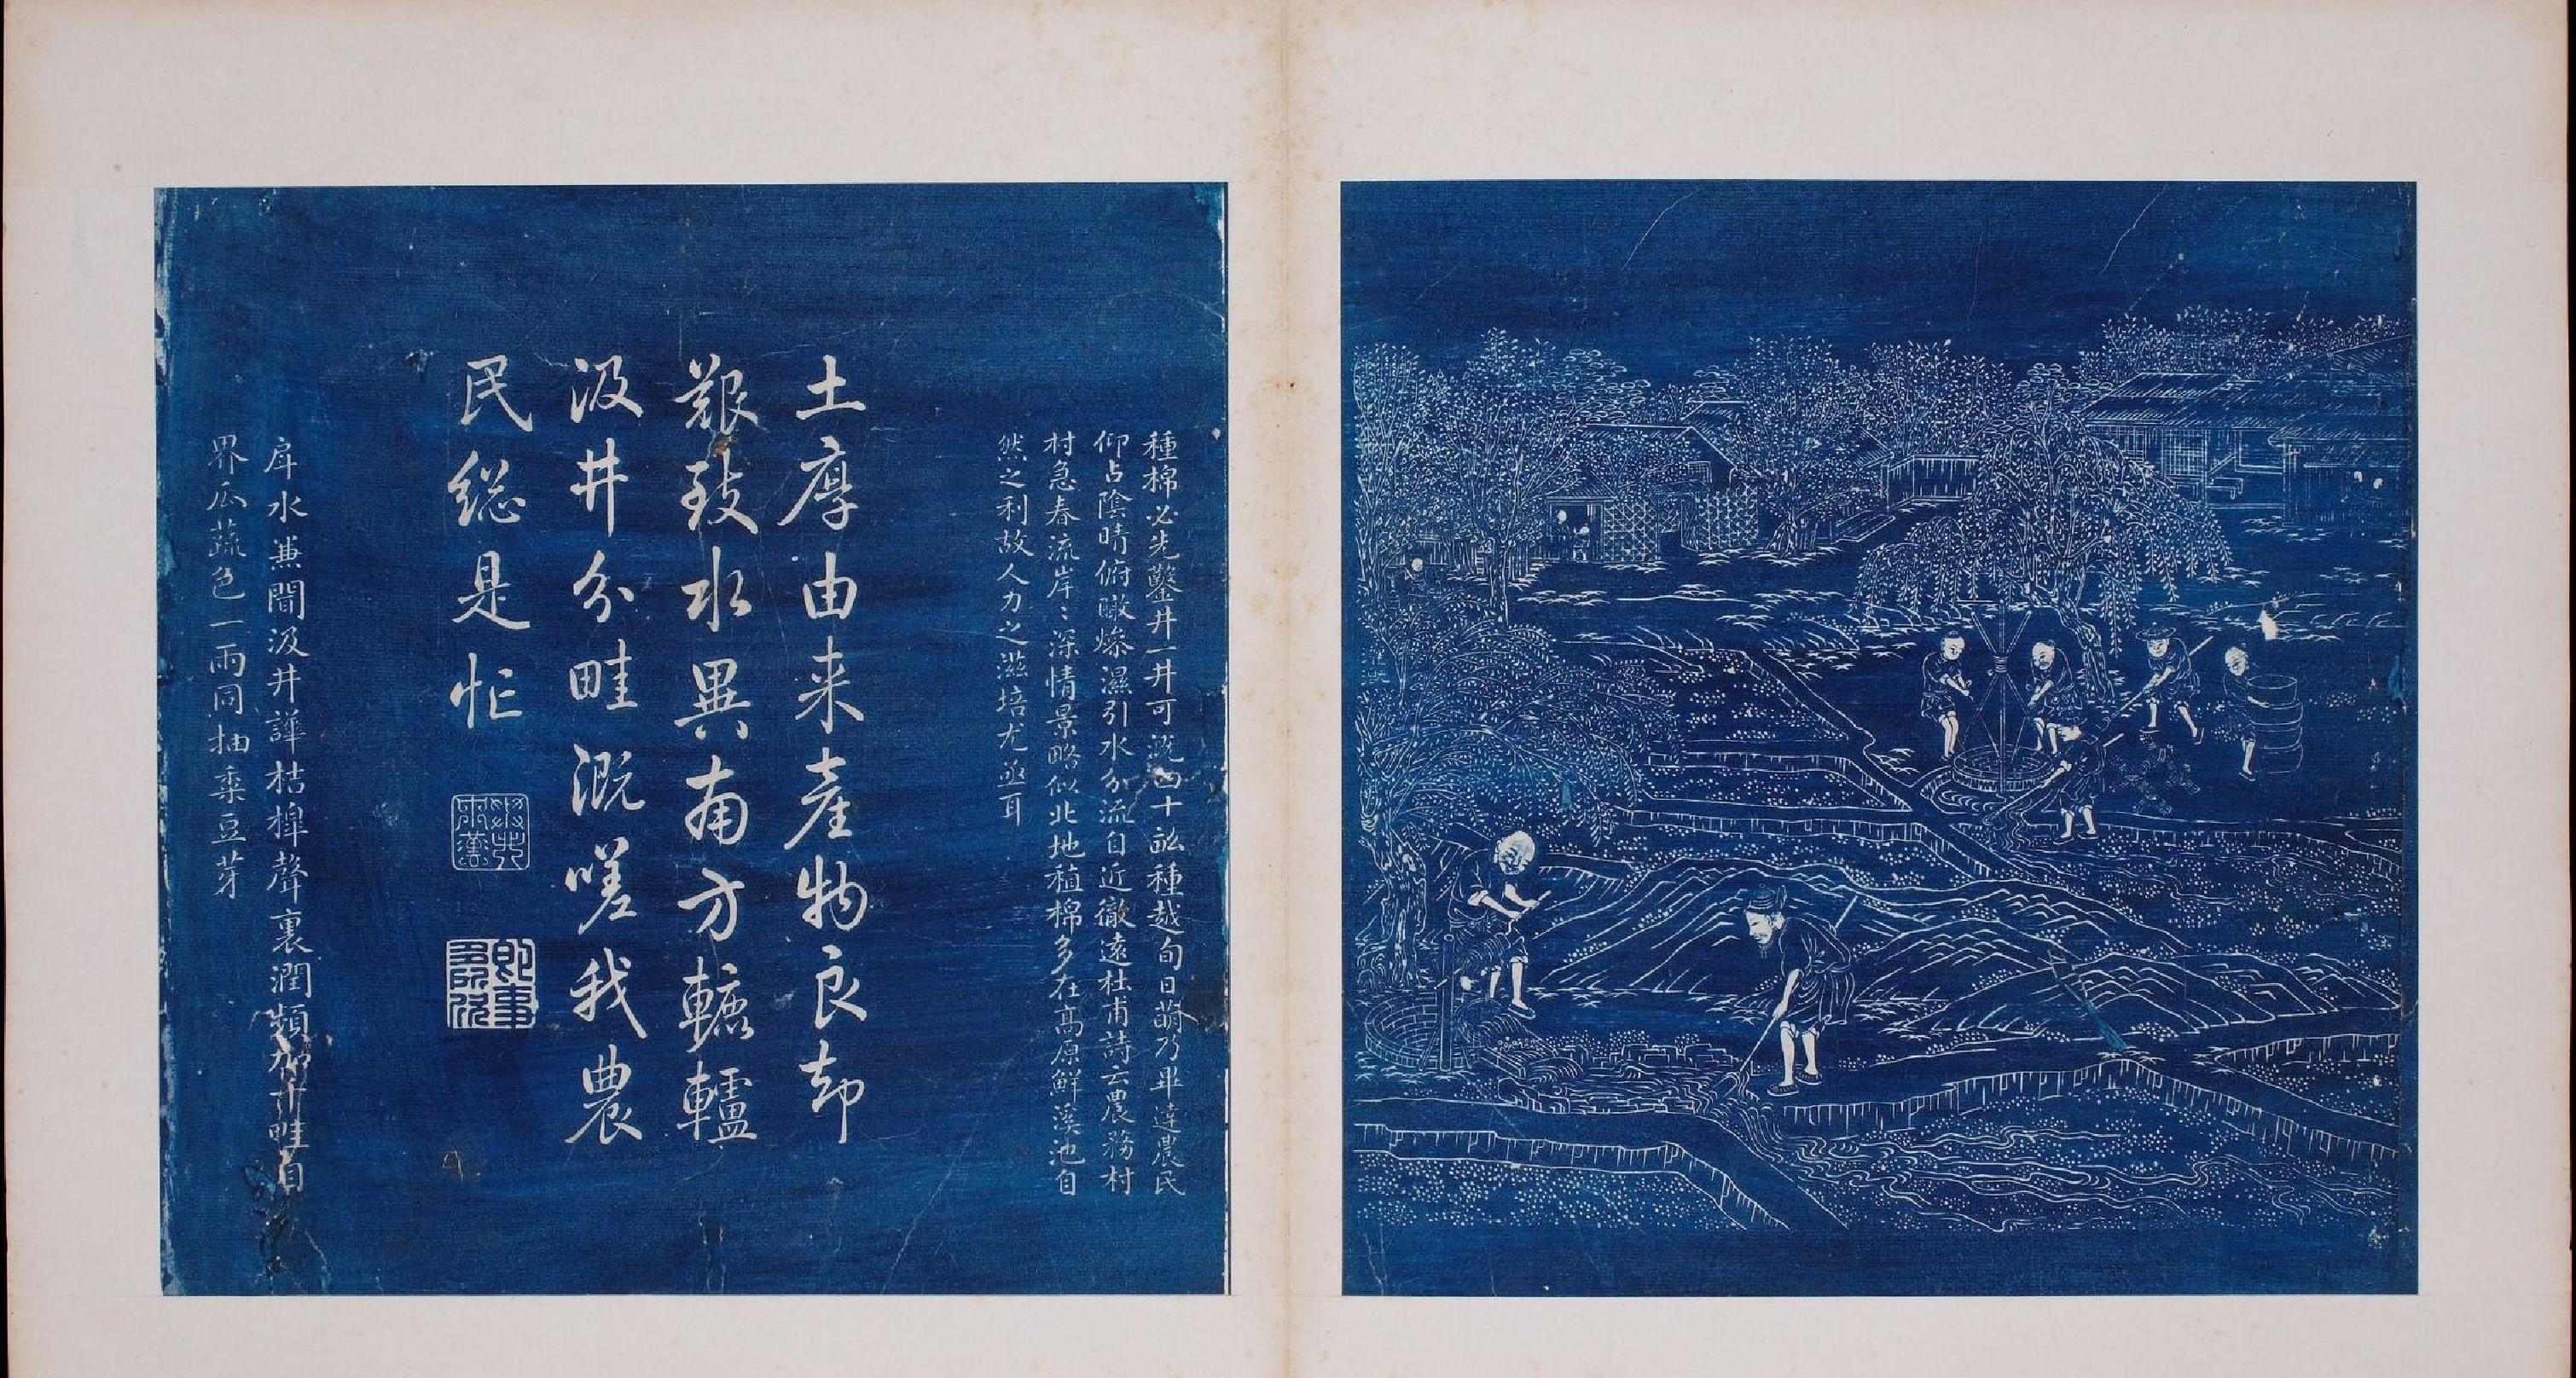 灌溉
種棉必先鑿井一井可溉四十畆種越旬日萌乃畢達農民
仰占陰晴俯瞰燥濕引水分流自近徹遠杜甫詩云農務村
村急春流岸〻深情景略似北地植棉多在高原鮮溪池自
然之利故人力之滋培尤亟耳
土厚由来產物良却
艱致水異南方轆轤
汲井分畦溉嗟我農
民総是忙
即事多所欣
戽水兼聞汲井譁桔橰聲裏潤頻加千畦自
界瓜蔬色一雨同抽黍豆芽